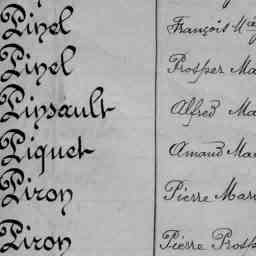 Pinel François M
Pinel Prosper Ma
Pinsault Alfred Ma
Piquet Amand Ma
Piron Pierre Mari
Piron Pierre Prosp